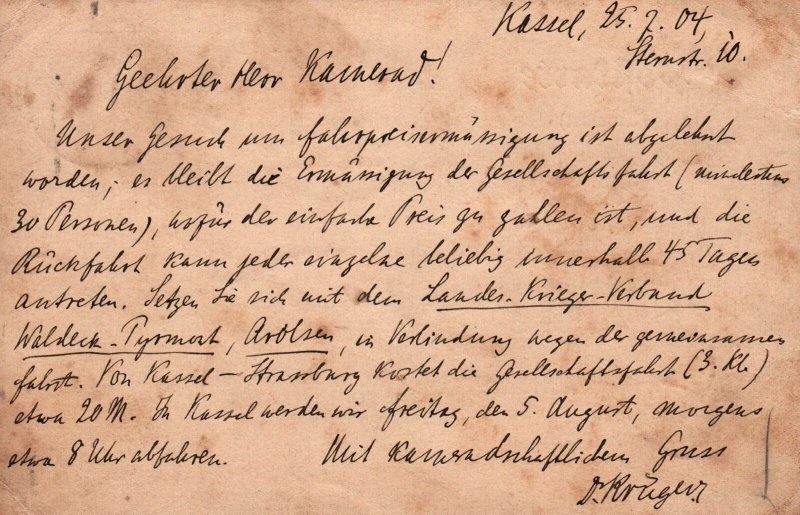 Kassel, 25.7.04,
Sternstr. 10.
Geehrter Herr Kamerad!
Unser Gesuch um Fahrpreisermässigung ist abgelehnt
worden; es bleibt die Ermässigung der Gesellschaftsfahrt (mindestens
30 Personen), wofür der einfache Preis zu zahlen ist, und die
Rückfahrt kann jeder einzelne beliebig innerhalb 45 Tagen
antreten. Setzen Sie sich mit dem Landes-Krieger-Verband
Waldeck-Pyrmont, Arolsen, in Verbindung wegen der gemeinsamen
Fahrt. Von Kassel – Strassburg kostet die Gesellschaftsfahrt (3. Kl.)
etwa 20 M. In Kassel werden wir Freitag, den 5. August, morgens
etwa 8 Uhr abfahren. Mit kameradschaftlichem Gruss
Dr. Krüger.